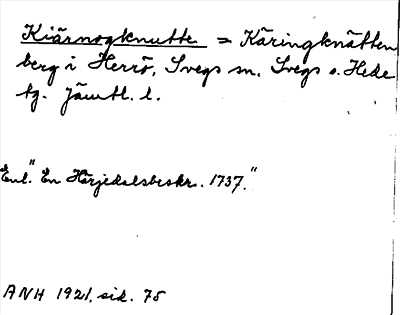 Kiärnogknutte = Käringknätten
berg i Herrö, Svegs sn. Svegs o. Hede
tg. Jämtl. l.
Enl. "En Härjedalsbeskr. 1737."
ANH 1921, sid. 75